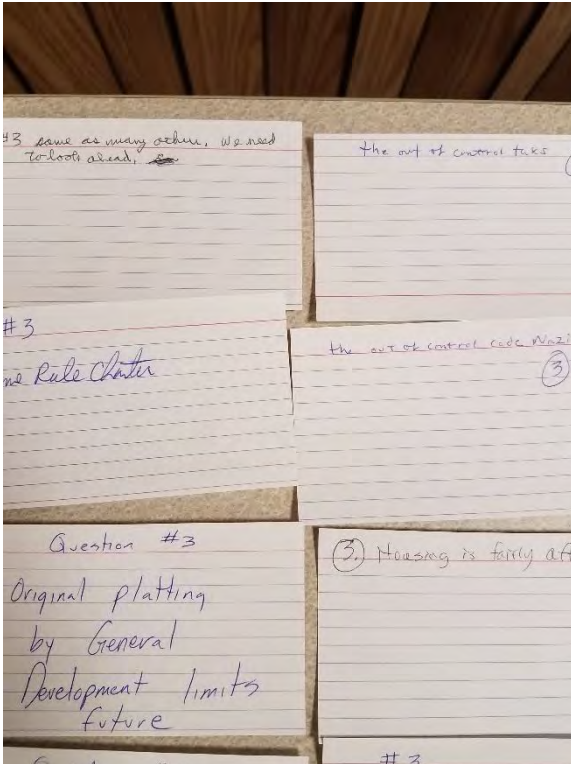 #3 same as many others. We need
to look ahead.
the out of control
#3
Rule Charter
the out of control code Nazi
3
Question #3
Original platting
by General
Development limits
future
3. Housing is fairly aff
#3